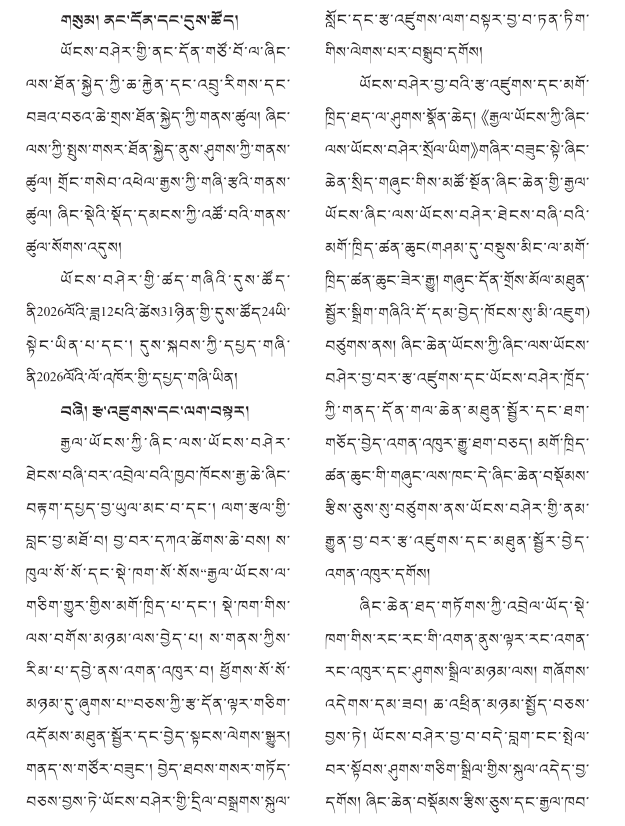 གསུམ། ནང་དོན་དང་དུས་ཚོད།
ཡོངས་བཤེར་གྱི་ནང་དོན་གཙོ་བོ་ལ་ཞིང་
ལས་ཐོན་སྐྱེད་ཀྱི་ཆ་རྐྱེན་དང་འབྲུ་རིགས་དང་
བཟའ་བཅའ་ཆེ་གྲས་ཐོན་སྐྱེད་ཀྱི་གནས་ཚུལ། ཞིང་
ལས་ཀྱི་སྤུས་གསར་ཐོན་སྐྱེད་ནུས་ཤུགས་ཀྱི་གནས་
ཚུལ། གྲོང་གསེབ་འཕེལ་རྒྱས་ཀྱི་གཞི་རྩའི་གནས་
ཚུལ། ཞིང་སྡེའི་སྡོད་དམངས་ཀྱི་འཚོ་བའི་གནས་
ཚུལ་སོགས་འདུས།
ཡོངས་བཤེར་གྱི་ཚད་གཞིའི་དུས་ཚོད་
ནི2026ལོའི་ཟླ12པའི་ཚེས31ཉིན་གྱི་དུས་ཚོད24ཡི་
སྟེང་ཡིན་པ་དང་། དུས་སྐབས་ཀྱི་དཔྱད་གཞི་
ནི2026ལོའི་ལོ་འཁོར་གྱི་དཔྱད་གཞི་ཡིན།
བཞི། རྩ་འཛུགས་དང་ལག་བསྟར།
རྒྱལ་ཡོངས་ཀྱི་ཞིང་ལས་ཡོངས་བཤེར་
ཐེངས་བཞི་བར་འབྲེལ་བའི་ཁྱབ་ཁོངས་རྒྱ་ཆེ་ཞིང་
བརྟག་དཔྱད་བྱ་ཡུལ་མང་བ་དང་། ལག་རྩལ་གྱི་
བླང་བྱ་མཐོ་བ། བྱ་བར་དཀའ་ཚེགས་ཆེ་བས། ས་
ཁུལ་སོ་སོ་དང་སྡེ་ཁག་སོ་སོས“རྒྱལ་ཡོངས་ལ་
གཅིག་གྱུར་གྱིས་མགོ་ཁྲིད་པ་དང་། སྡེ་ཁག་གིས་
ལས་བགོས་མཉམ་ལས་བྱེད་པ། ས་གནས་ཀྱིས་
རིམ་པ་དབྱེ་ནས་འགན་འཁུར་བ། ཕྱོགས་སོ་སོ་
མཉམ་དུ་ཞུགས་པ”བཅས་ཀྱི་རྩ་དོན་ལྟར་གཅིག་
འདོམས་མཐུན་སྦྱོར་དང་བྱེད་སྟངས་ལེགས་སྒྱུར།
གནད་ས་གཙོར་བཟུང་། བྱེད་ཐབས་གསར་གཏོད་
བཅས་བྱས་ཏེ་ཡོངས་བཤེར་གྱི་དྲིལ་བསྒྲགས་སྐུལ་
སློང་དང་རྩ་འཛུགས་ལག་བསྟར་བྱ་བ་ཏན་ཏིག་
གིས་ལེགས་པར་བསྒྲུབ་དགོས།
ཡོངས་བཤེར་བྱ་བའི་རྩ་འཛུགས་དང་མགོ་
ཁྲིད་ཐད་ལ་ཤུགས་སྣོན་ཆེད། 《རྒྱལ་ཡོངས་ཀྱི་ཞིང་
ལས་ཡོངས་བཤེར་སྲོལ་ཡིག》གཞིར་བཟུང་སྟེ་ཞིང་
ཆེན་སྲིད་གཞུང་གིས་མཚོ་སྔོན་ཞིང་ཆེན་གྱི་རྒྱལ་
ཡོངས་ཞིང་ལས་ཡོངས་བཤེར་ཐེངས་བཞི་བའི་
མགོ་ཁྲིད་ཚན་ཆུང(གཤམ་དུ་བསྡུས་མིང་ལ་མགོ་
ཁྲིད་ཚན་ཆུང་ཟེར་རྒྱུ། གཞུང་དོན་གྲོས་མོལ་མཐུན་
སྦྱོར་སྒྲིག་གཞིའི་དོ་དམ་བྱེད་ཁོངས་སུ་མི་འཇུག)
བཙུགས་ནས། ཞིང་ཆེན་ཡོངས་ཀྱི་ཞིང་ལས་ཡོངས་
བཤེར་བྱ་བར་རྩ་འཛུགས་དང་ཡོངས་བཤེར་ཁྲོད་
ཀྱི་གནད་དོན་གལ་ཆེན་མཐུན་སྦྱོར་དང་ཐག་
གཅོད་བྱེད་འགན་འཁུར་རྒྱུ་ཐག་བཅད། མགོ་ཁྲིད་
ཚན་ཆུང་གི་གཞུང་ལས་ཁང་དེ་ཞིང་ཆེན་བསྡོམས་
རྩིས་ཅུས་སུ་བཙུགས་ནས་ཡོངས་བཤེར་གྱི་ནམ་
རྒྱུན་བྱ་བར་རྩ་འཛུགས་དང་མཐུན་སྦྱོར་བྱེད་
འགན་འཁུར་དགོས།
ཞིང་ཆེན་ཐད་གཏོགས་ཀྱི་འབྲེལ་ཡོད་སྡེ་
ཁག་གིས་རང་རང་གི་འགན་ནུས་ལྟར་རང་འགན་
རང་འཁུར་དང་ཤུགས་སྒྲིལ་མཉམ་ལས། གཞོགས་
འདེགས་དམ་ཟབ། ཆ་འཕྲིན་མཉམ་སྤྱོད་བཅས་
བྱས་ཏེ། ཡོངས་བཤེར་བྱ་བ་བདེ་བླག་ངང་སྤེལ་
བར་སྟོབས་ཤུགས་གཅིག་སྒྲིལ་གྱིས་སྐུལ་འདེད་བྱ་
དགོས། ཞིང་ཆེན་བསྡོམས་རྩིས་ཅུས་དང་རྒྱལ་ཁབ་